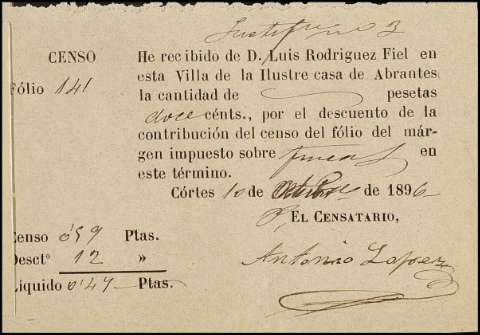 Justific.. 3
CENSO
Fólio 141
He recibido de D. Luis Rodriguez Fiel en
esta Villa de la Ilustre casa de Abrantes
la cantidad de pesetas
doce cénts., por el descuento de la
contribución del censo del fólio del már-
gen impuesto sobre fincas en
este término.
Córtes 10 de Octubre de 1896
EL CENSATARIO,
Censo 0'59 Ptas.
Desctº 12 »
Líquido 0'47 Ptas.
Antonio Lopez